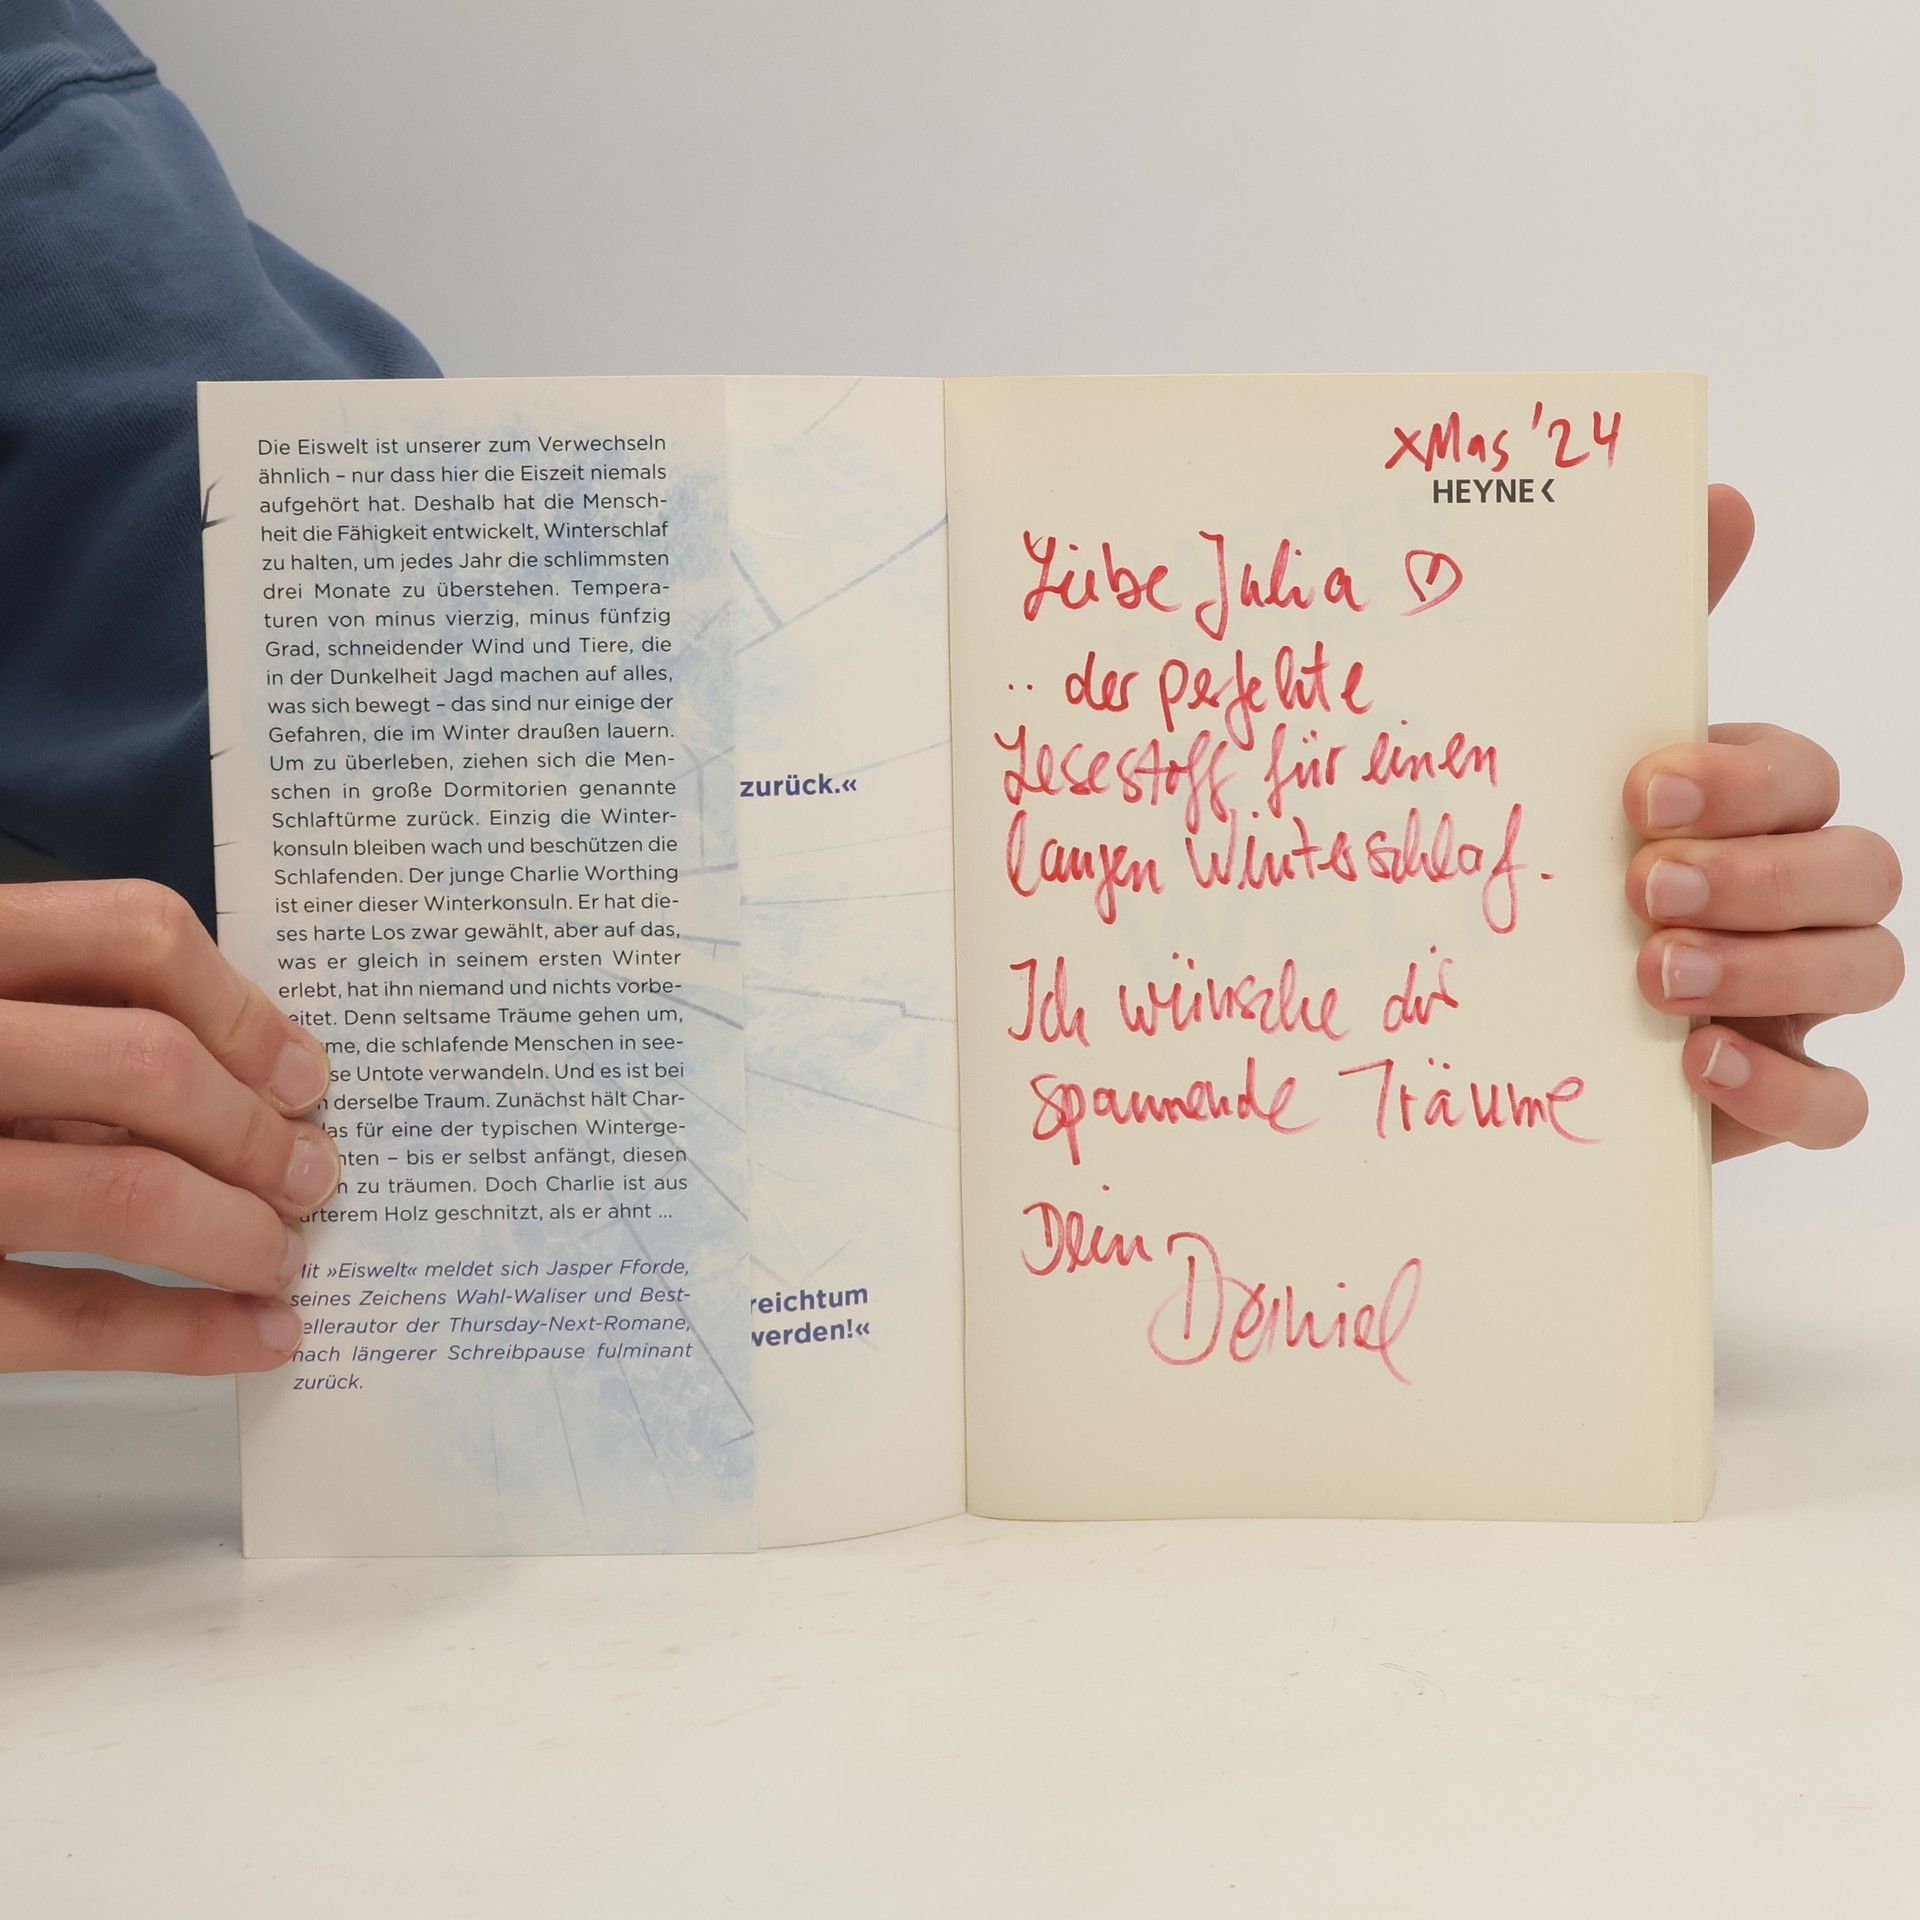 Die Eiswelt ist unserer zum Verwechseln
ähnlich – nur dass hier die Eiszeit niemals
aufgehört hat. Deshalb hat die Mensch-
heit die Fähigkeit entwickelt, Winterschlaf
zu halten, um jedes Jahr die schlimmsten
drei Monate zu überstehen. Tempera-
turen von minus vierzig, minus fünfzig
Grad, schneidender Wind und Tiere, die
in der Dunkelheit Jagd machen auf alles,
was sich bewegt – das sind nur einige der
Gefahren, die im Winter draußen lauern.
Um zu überleben, ziehen sich die Men-
schen in große Dormitorien genannte
Schlaftürme zurück. Einzig die Winter-
konsuln bleiben wach und beschützen die
Schlafenden. Der junge Charlie Worthing
ist einer dieser Winterkonsuln. Er hat die-
ses harte Los zwar gewählt, aber auf das,
was er gleich in seinem ersten Winter
erlebt, hat ihn niemand und nichts vorbe-
eitet. Denn seltsame Träume gehen um,
me, die schlafende Menschen in see-
se Untote verwandeln. Und es ist bei
n derselbe Traum. Zunächst hält Char-
das für eine der typischen Winterge-
hten – bis er selbst anfängt, diesen
n zu träumen. Doch Charlie ist aus
ärterem Holz geschnitzt, als er ahnt ...
Mit »Eiswelt« meldet sich Jasper Fforde,
seines Zeichens Wahl-Waliser und Best-
ellerautor der Thursday-Next-Romane,
nach längerer Schreibpause fulminant
zurück.
zurück.«
reichtum
werden!«
xMas '24
HEYNE
Liebe Julia
.. der perfekte
Lesestoff für einen
langen Winterschlaf.
Ich wünsche dir
spannende Träume
Dein
Daniel